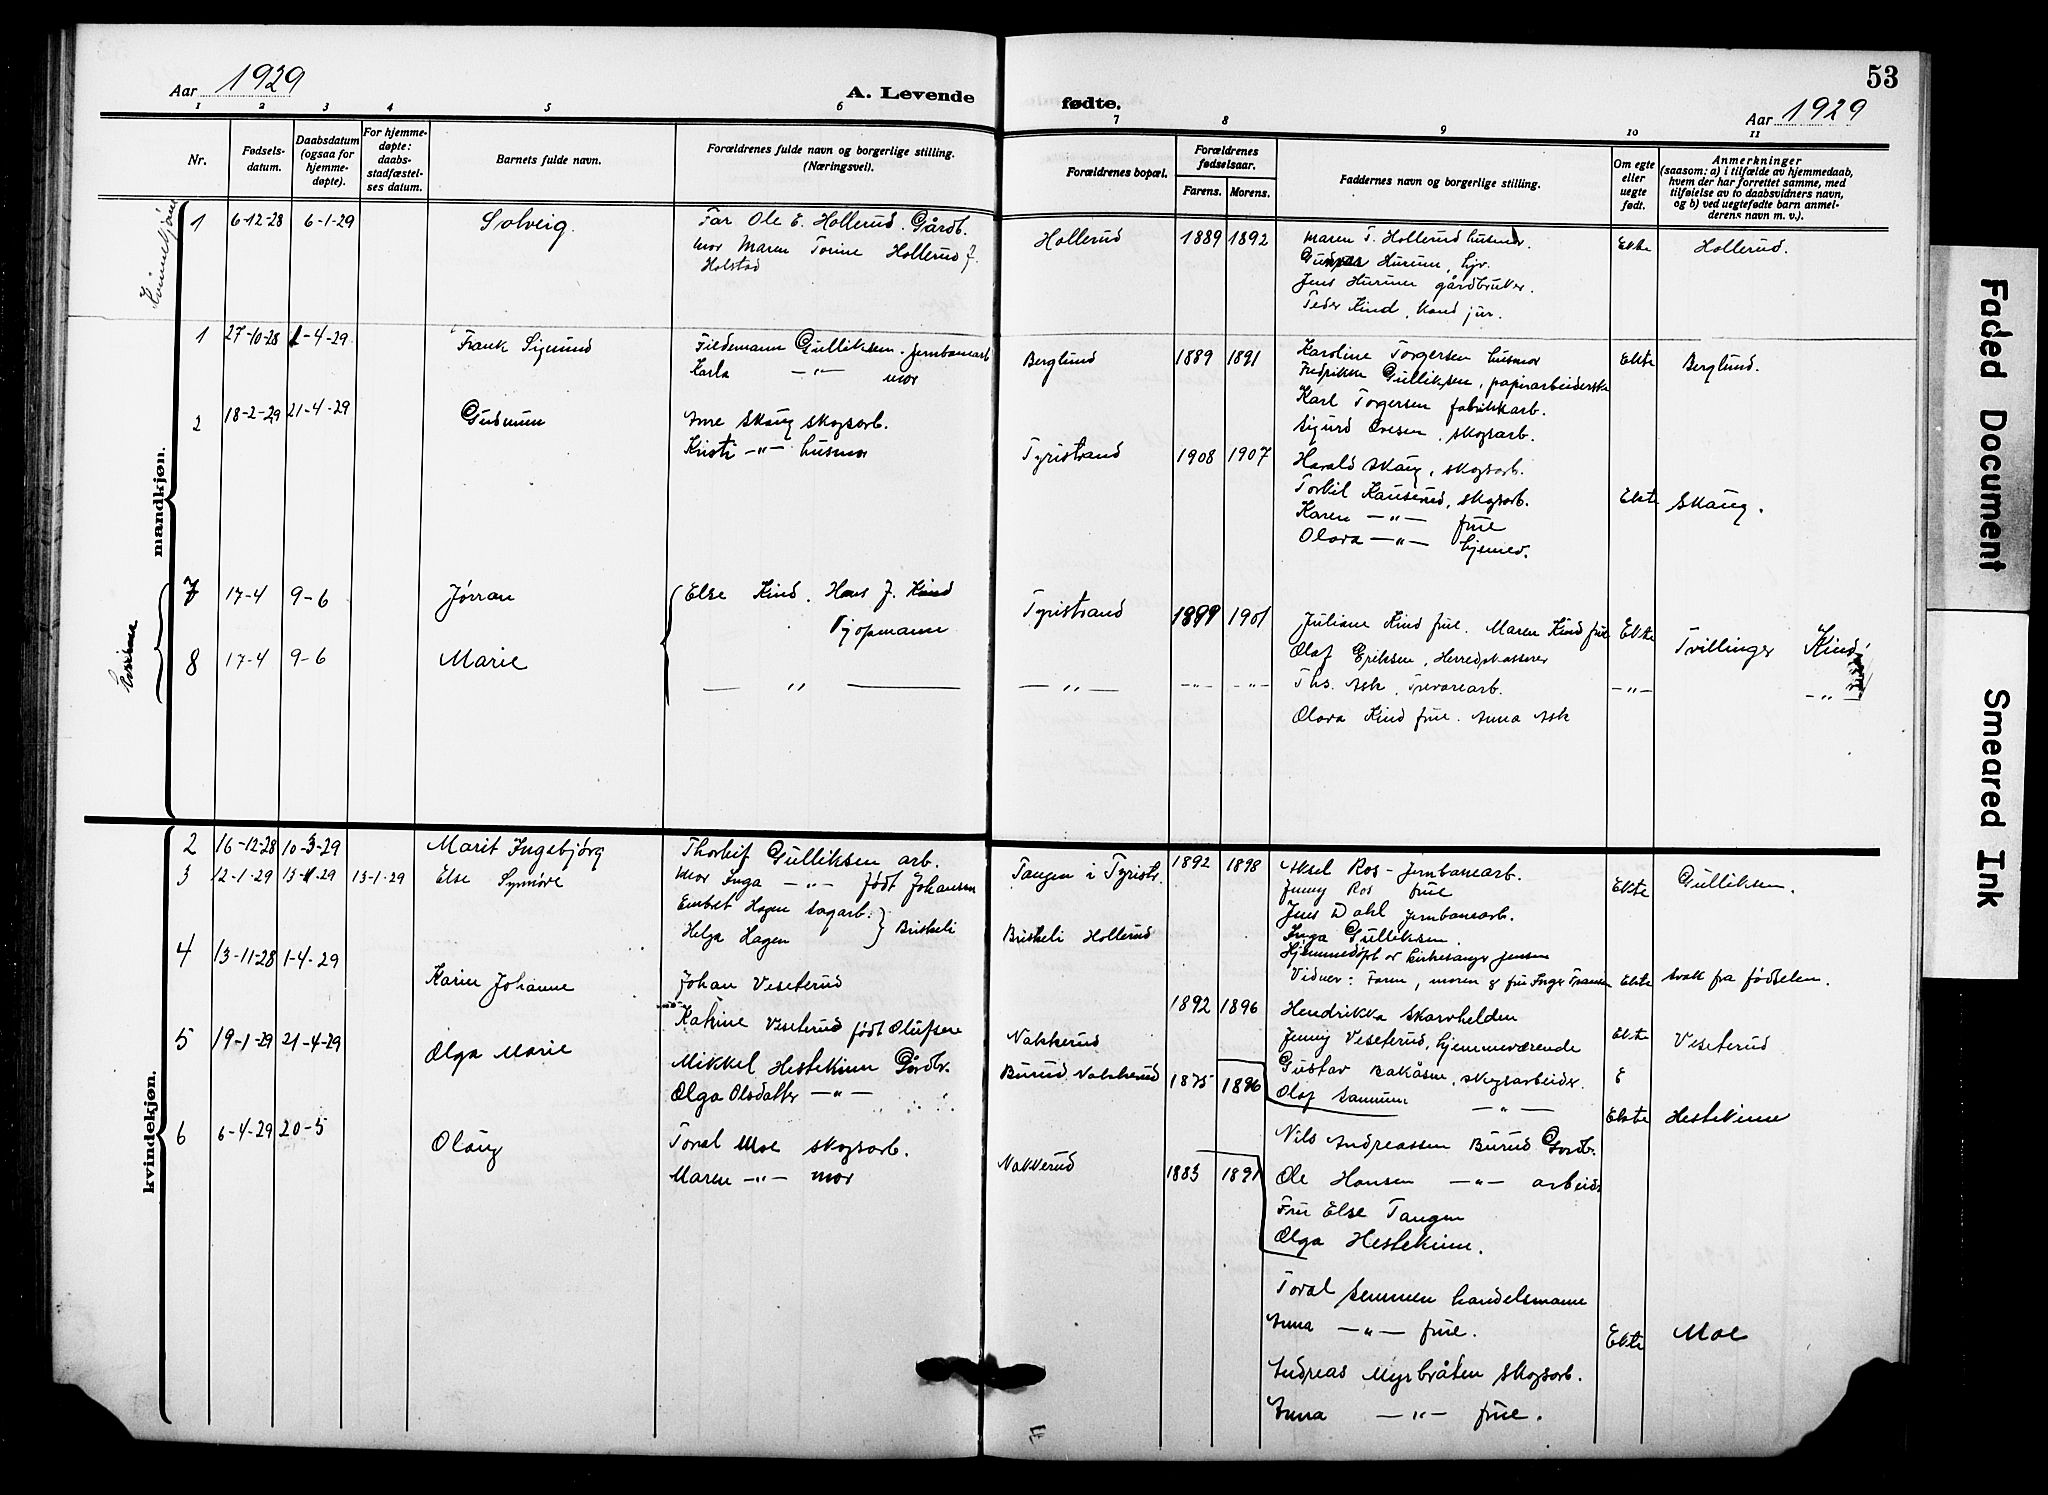 Aar 1929
A. Levende
fødte.
53
Aar 1929
1 2 3 4 5 6 7 8 9 10 11
Nr.
Fødsels-
datum.
Daabsdatum
(ogsaa for
hjemme-
døpte).
For hjemme-
døpte:
daabs-
stadfæstel-
ses datum.
Barnets fulde navn.
Forældrenes fulde navn og borgerlige stilling.
(Næringsvei).
Forældrenes bopæl.
Forældrenes
fødselsaar.
Farens. Morens.
Faddernes navn og borgerlige stilling.
Om egte
eller
uegte
født.
Anmerkninger
(saasom: a) i tilfælde av hjemmedaab,
hvem der har forrettet samme, med
tilføielse av to daabsvidners navn,
og b) ved uegtefødte barn anmel-
derens navn m. v.).
Kvinnekjønn
1 6-12-28 6-1-29 Solveig Far Ole E. Hollerud. Gårdb.
Mor Maren Torine Hollerud f.
Holstad
Hollerud 1889 1892 Maren T. Hollerud husmor.
Hurum, hjv.
Jens Hurum gårdbruker.
Peder Kind, kand jur.
Ekte Hollerud.
mandkjøn.
1 27-10-28 1-4-29 Frank Sigmund Fildemann Gulliksen. jernbanearb
Karla —"— mor
Berglund 1889 1891 Karoline Torgersen husmor
Fredrikke Gulliksen, papirarbeiderske
Karl Torgersen fabrikkarb.
Sigurd Ovesen, skogsarb.
Ekte Berglund.
2 18-2-29 21-4-29 Gudmun Arne Skaug skogsarb.
Kristi —"— husmor
Tyristrand 1908 1907 Harald Skaug, skogsarb.
Torkil Kauserud, skogsarb.
Karen —"— frue
Olava —"— hjemmev.
Ekte Skaug.
Kvinne
7 17-4 9-6 Jørran Else Kind. Hans J. Kind
Tyristrand 1899 1901 Juliane Kind frue. Maren Kind frue
Olaf Eriksen, Herredskasserer
Ekte Tvillinger Kind
8 17-4 9-6 Marie — " —
— " — -"- -"- Ths. Ask, Trevarearb.
Olava Kind frue. Anna Ask
—"— —"—
kvindekjøn.
2 16-12-28 10-3-29 Marit Ingebjørg Thorleif Gulliksen arb.
Mor Inga —"— født Johansen
Tangen i Tyristr. 1892 1898 Aksel Ros - Jernbanearb.
Jenny Ros frue
Jens Dahl jernbanearb.
Inga Gulliksen.
Ekte Gulliksen.
3 12-1-29 13-1-29 13-1-29 Else Synnøve Embret Hagen sagarb.
Helga Hagen } Briskeli
Briskeli Hollerud
Hjemmedøpt av Kirkesanger Jensen
Vidner: Faren, moren & fru Inger Fransen Ekte svak fra fødselen.
4 13-11-28 1-4-29 Karin Johanne Johan Veseterud
Katrine Veseterud født Olufsen
Nakkerud 1892 1896 Hendrikka Skarvhelden
Jenny Veseterud, hjemmeværende
Gustav Bakåsen, skogsarbeider.
Olaf —"—
Ekte Veseterud
5 19-1-29 21-4-29 Olga Marie Mikkel Hestekinn Gårdbr.
Olga Olsdatter —"—
Burud Nakkerud 1875 1896
Nils Andreassen Burud Gårdb.
Ole Hansen —"— arbeider
Fru Else Tangen
Olga Hestekinn.
E
Ekte Hestekinn
6 6-4-29 20-5 Olaug Toral Moe skogsarb.
Maren —"— mor
Nakkerud 1883 1891
Toral Semmen handelsmann
Anna —"— frue.
Andreas Myrbråten skogsarb.
Anna —"— frue.
Ekte Moe
Faded Document
Smeared Ink